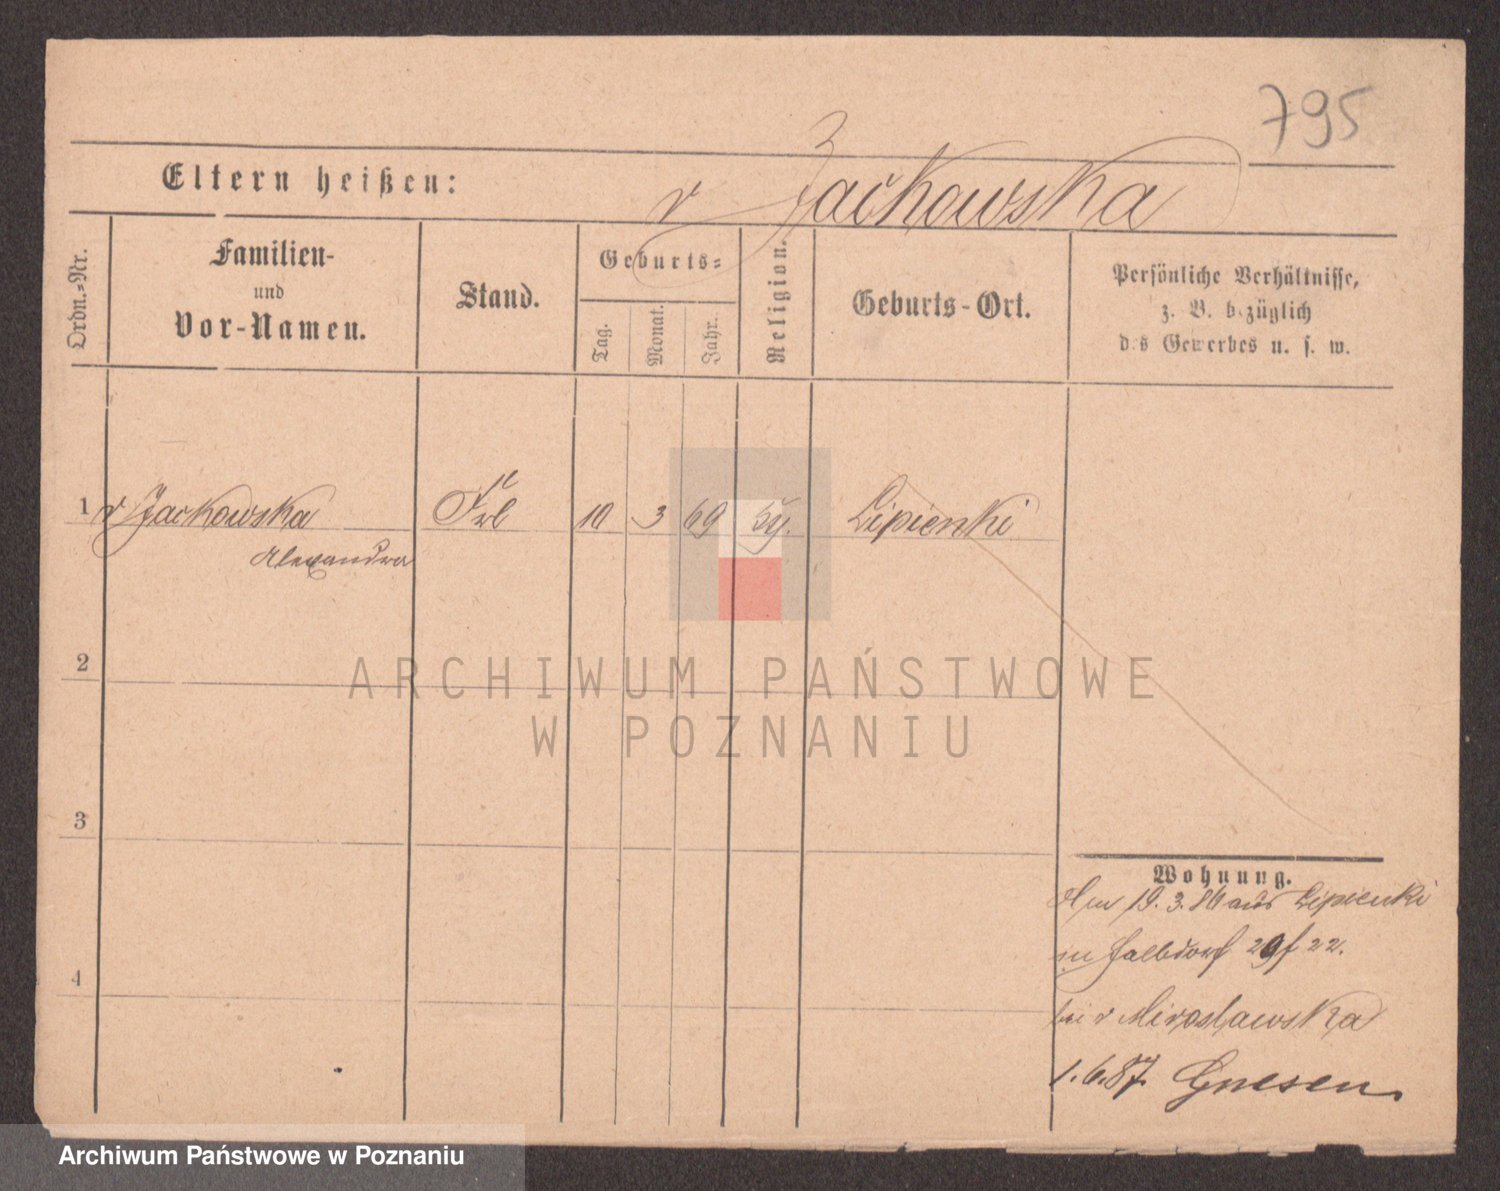 795
Eltern heißen: v Jackowska
Ordn.-Nr.
Familien-
und
Vor-Namen.
Stand.
Geburts-
Tag.
Monat.
Jahr.
Religion.
Geburts-Ort.
Persönliche Verhältnisse,
z. B. bezüglich
des Gewerbes u. s. w.
1 v Jackowska Frl 10 3 69 Lipienki
Alexandra
2
3
4
Wohnung.
19. 3. 86 aus Lipienki
in Halbdorf 29/22.
bei v Miroslawska
1. 6. 87. Gnesen.
ARCHIWUM PAŃSTWOWE
W POZNANIU
Archiwum Państwowe w Poznaniu